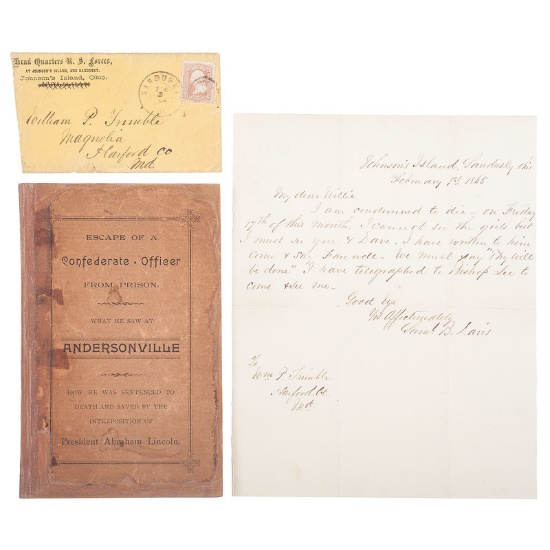 Head Quarters U. S. Forces,
AT JOHNSON'S ISLAND, AND SANDUSKY,
Johnson's Island, Ohio.
SANDUSKY
William P. Trimble
Magnolia
Harford Co
Md.
ESCAPE OF A
Confederate Officer
FROM PRISON.
WHAT HE SAW AT
ANDERSONVILLE
HOW HE WAS SENTENCED TO
DEATH AND SAVED BY THE
INTERPOSITION OF
President Abraham Lincoln.
Johnson's Island, Sandusky Ohio
February 1st 1865
My dear Willie
I am condemned to die on Friday
17th of this month. I cannot see the girls but
I must see you & Dave. I have written to him
Come & say farewell. We must say "Thy will
be done" I have telegraphed to Bishop Lee to
come & see me.
Good bye
Yrs Affectionately
Saml. B. Davis
To
Wm P. Trimble
Harford Co
Md